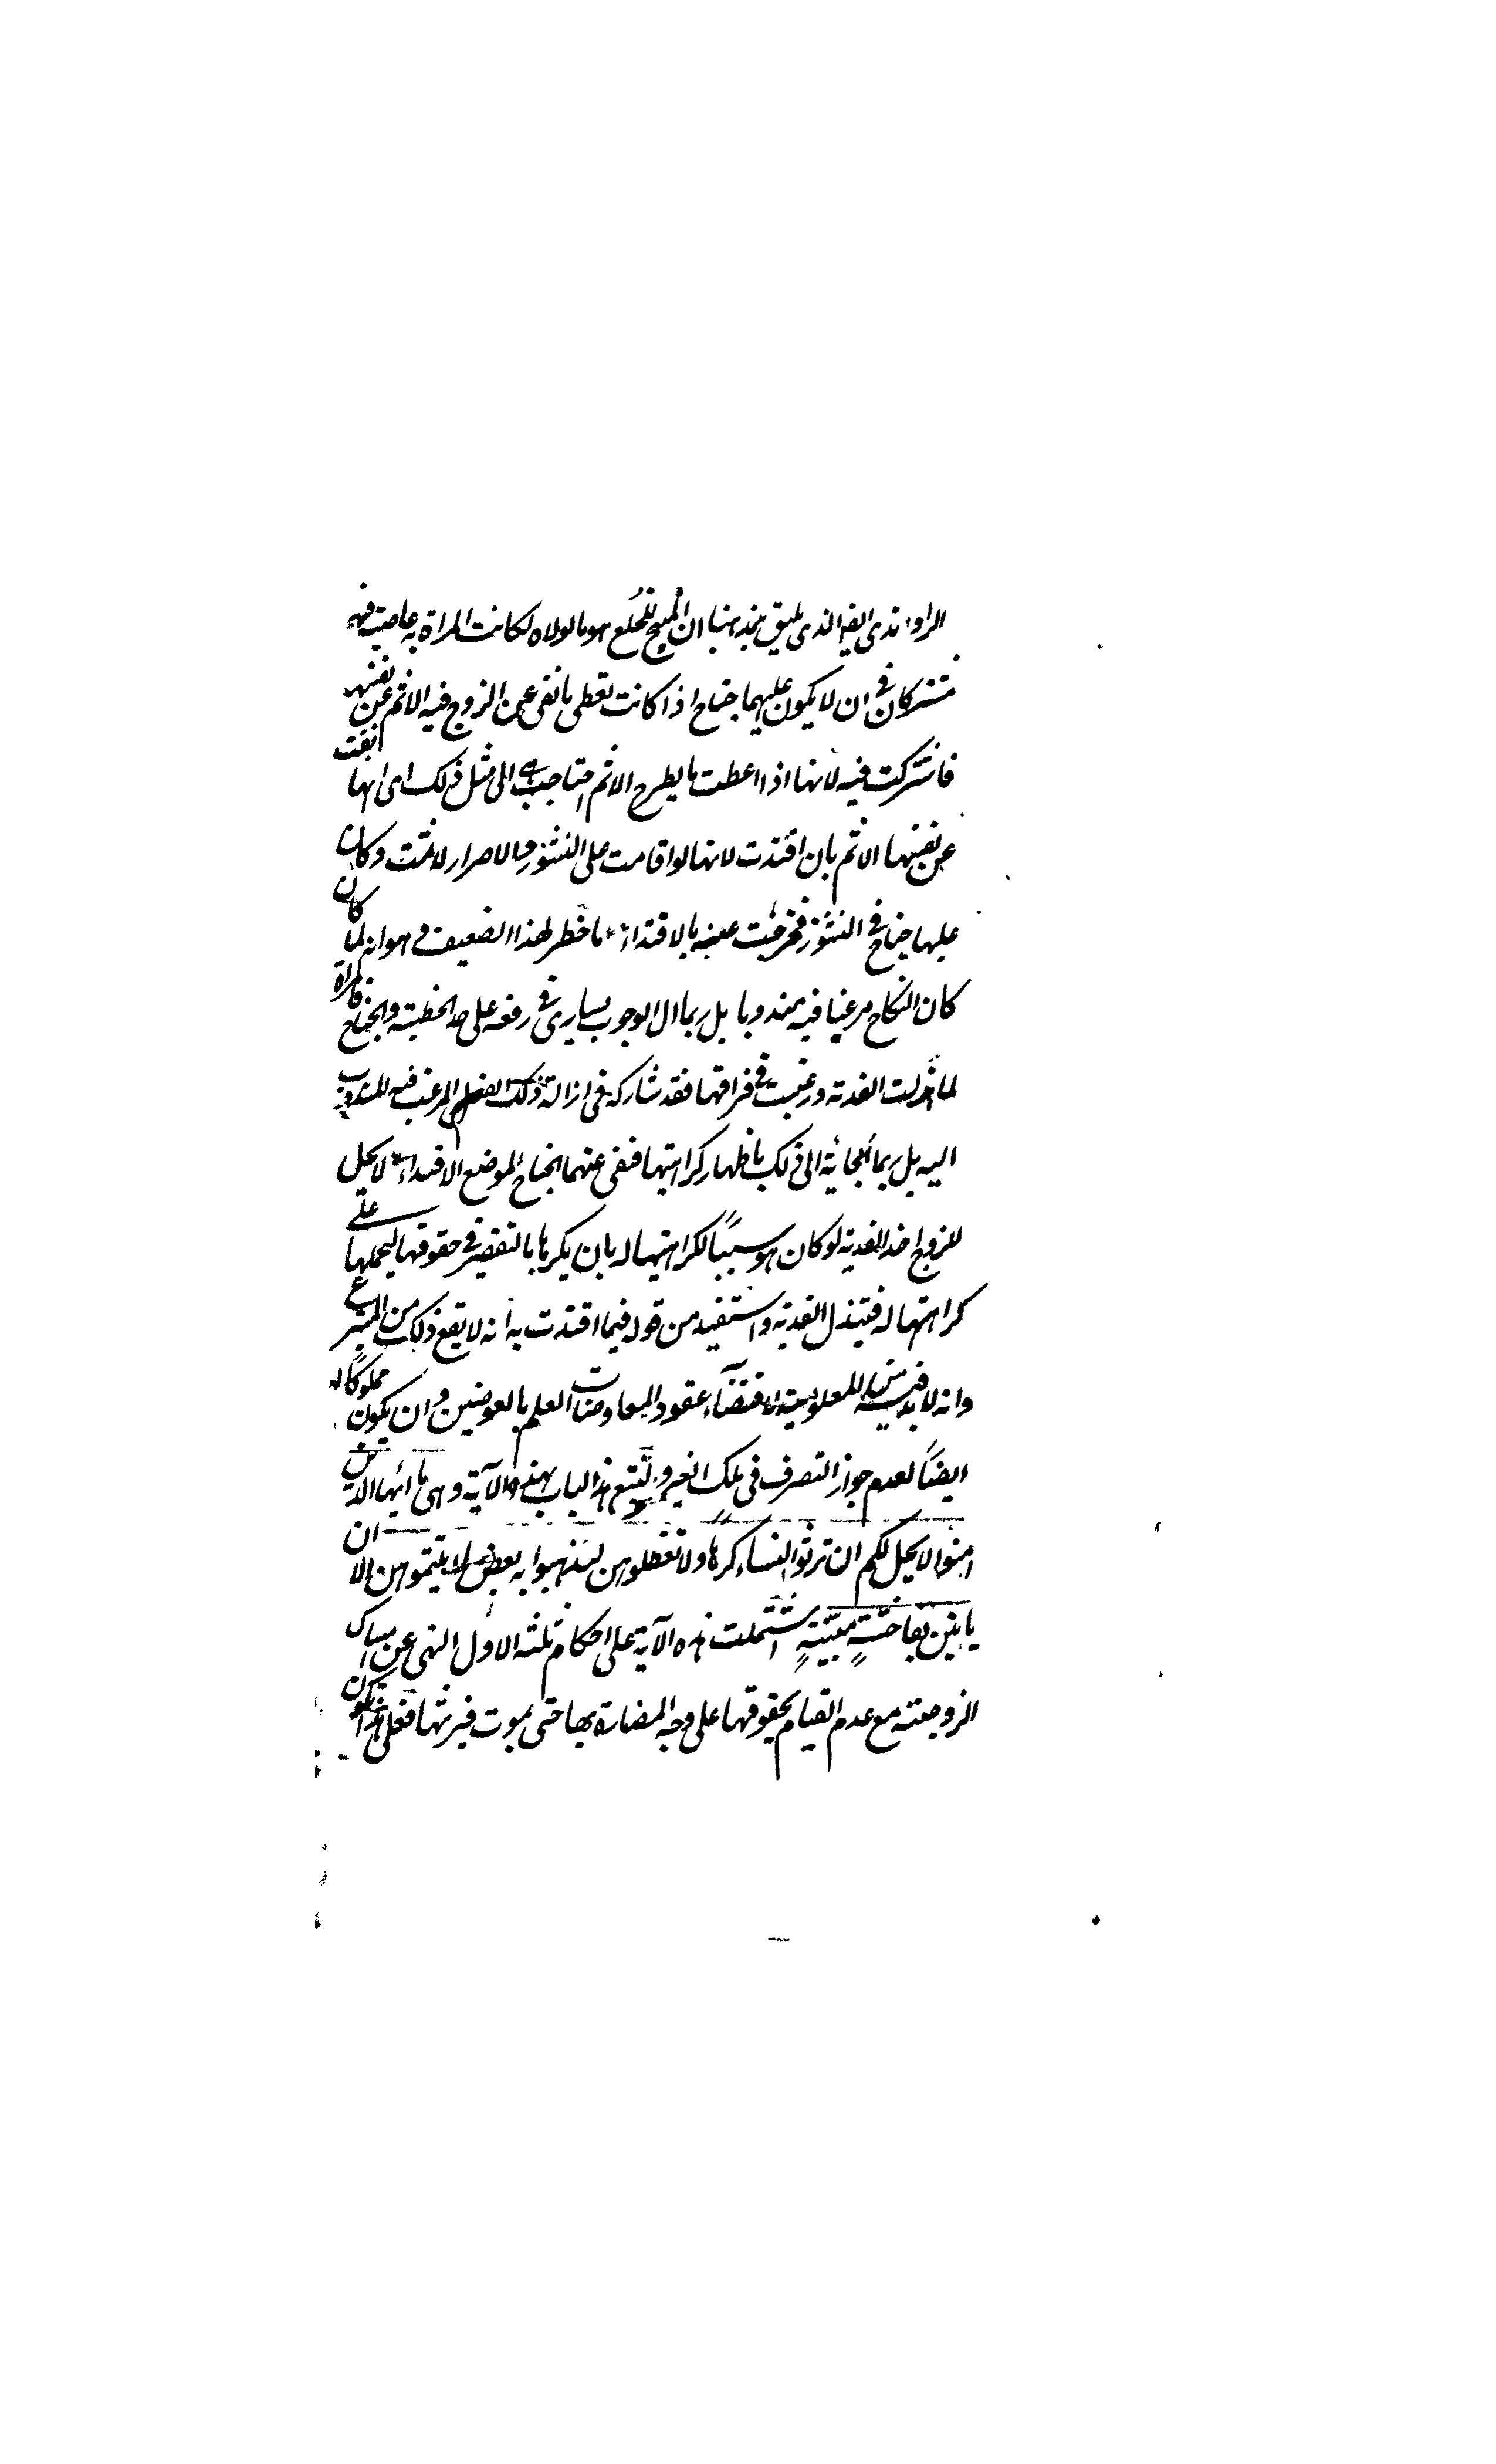 الراوندى ايضا الذى يليق بمذهبنا ان المبيح للخلع هو ما لولاه لكانت المراة به عاصية فهما
مشتركان فى ان لا يكون عليهما جناح اذا كانت تعطى ما نفى عن الزوج فيه الاثم عن نفسها
فاشتركت فيه لانها اذا اعطت ما يطرح الاثم احتاجت هى الى مثل ذلك اى انها انفت
عن نفسها الاثم بان افتدت لانها لو اقامت على النشوز والاصرار لاثمت وكان
عليها جناح فى النشوز فخرجت عنه بالافتداء ما خطر لهذا الضعيف وهو انه لما كان
كان النكاح مرغبا فيه مندوبا بل ربما ال الوجوب يسارى فى رفعه على حد الخطيئة والجناح فالمراة
لما بذلت الفدية ورغبت فى فراقها فقد شاركه فى ازالة ذلك الفضل المرغب فيه المندوب
اليه بل ربما ألجائته الى ذلك باظهار كراهتيها فنفى عنهما الجناح لموضع الافتداء لا يحل
للزوج اخذ الفدية لو كان هو سببًا لكراهتيها له بان يكرهها بالتقصير فى حقوقها ليحملها على
كراهتها له فتبذل الفدية واستفيد من قوله فيما افتدت به انه لا يقع ذلك من المتبرع
وانه لا بد فيه من المعلومية لاقتضاء عقود المعاوضات العلم بالعوضين وان يكون مملوكًا له
ايضًا لعدم جواز التصرف فى ملك الغير ولنتبع هذا الباب بهذه الآية وهى يا ايها الذين
امنوا لا يحل لكم ان ترثوا النساء كرها ولا تعضلوهن لتذهبوا ببعض ما آتيتموهن الا ان
ياتين بفاحشةٍ مبيّنةٍ اشتملت هذه الآية على احكام ثلثة الاول النهى عن امساك
الزوجة مع عدم القيام بحقوقها على وجه المضارة بها حتى يموت فيرثها فعلى هذا يكون